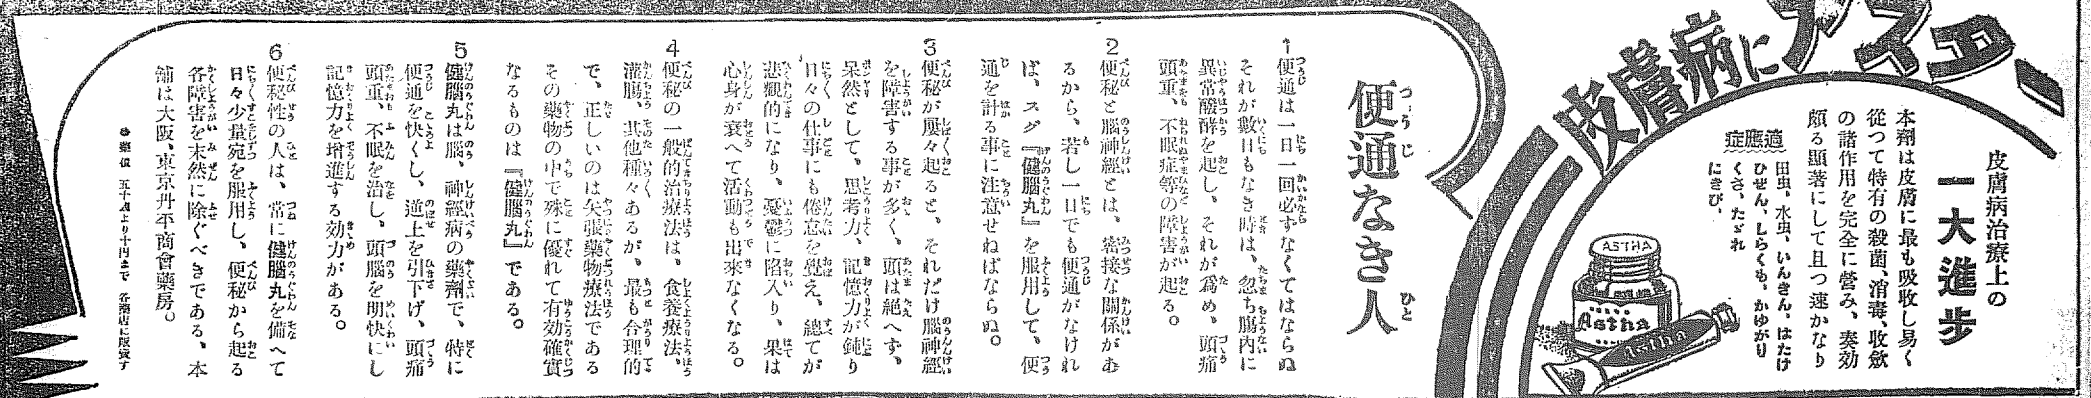 皮膚病にアスター
皮膚病治療上の
一大進歩
本劑は皮膚に最も吸收し易く
從つて特有の殺菌、消毒、收斂
の諸作用を完全に營み、奏効
頗る顯著にして且つ速かなり
適應症
田虫、水虫、いんきん、はたけ
ひぜん、しらくも、かゆがり
くさ、たゞれ
にきび、
ASTHA
Astha
Astha
便通なき人
1 便通は一日一回必ずなくてはならぬ
それが數日もなき時は、忽ち腸内に
異常醗酵を起し、それが爲め、頭痛
頭重、不眠症等の障害が起る。
2 便秘と腦神經とは、密接な關係があ
るから、若し一日でも便通がなけれ
ば、スグ『健腦丸』を服用して、便
通を計る事に注意せねばならぬ。
3 便秘が屢々起ると、それだけ腦神經
を障害する事が多く、頭は絶へず、
呆然として、思考力、記憶力が鈍り
日々の仕事にも倦怠を覺え、總てが
悲觀的になり、憂鬱に陷入り、果は
心身が衰へて活動も出來なくなる。
4 便秘の一般的治療法は、食養療法、
灌腸、其他種々あるが、最も合理的
で、正しいのは矢張藥物療法である
その藥物の中で殊に優れて有効確實
なるものは『健腦丸』である。
5 健腦丸は腦、神經病の藥劑で、特に
便通を快くし、逆上を引下げ、頭痛
頭重、不眠を治し、頭腦を明快にし
記憶力を增進する効力がある。
6 便秘性の人は、常に健腦丸を備へて
日々少量宛を服用し、便秘から起る
各障害を未然に除ぐべきである、本
舗は大阪、東京丹平商會藥房。
●藥價 五十錢より十円まで 各藥店に販賣す